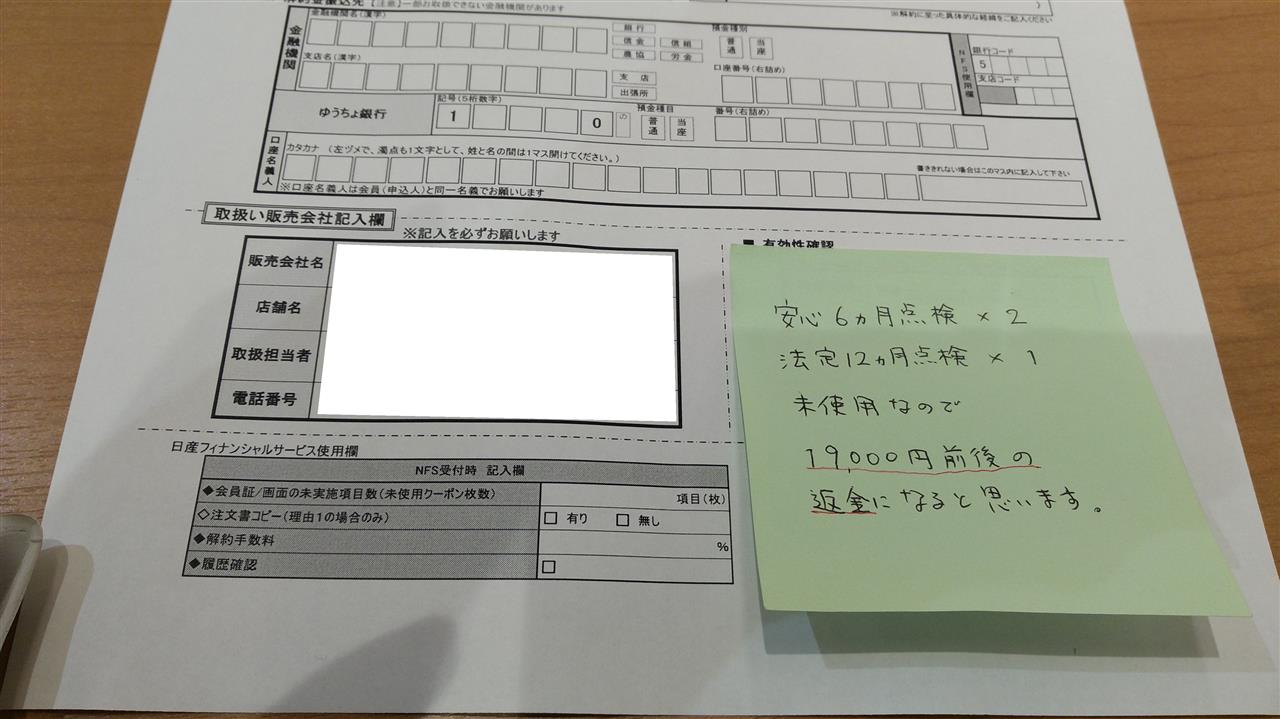 解約金振込先 【注意】一部お取扱できない金融機関があります
※解約に至った具体的な経緯をご記入ください
)
金融機関
金融機関名(漢字)
銀行
信金 信組
農協 労金
預金種別
普通 当座
NFS使用欄
銀行コード
5
支店コード
支店名(漢字)
支店
出張所
口座番号(右詰め)
ゆうちょ銀行
記号(5桁数字)
1 0 の
預金種目
普通 当座
番号(右詰め)
口座名義人
カタカナ (左ヅメで、濁点も1文字として、姓と名の間は1マス開けてください。)
書ききれない場合はこのマス内に記入して下さい
※口座名義人は会員(申込人)と同一名義でお願いします
取扱い販売会社記入欄
※記入を必ずお願いします
販売会社名
店舗名
取扱担当者
電話番号
■ 有効性確認
安心6ヵ月点検 × 2
法定12ヵ月点検 × 1
未使用なので
19,000円前後の
返金になると思います。
日産フィナンシャルサービス使用欄
NFS受付時 記入欄
◆会員証/画面の未実施項目数(未使用クーポン枚数) 項目(枚)
◇注文書コピー(理由1の場合のみ) □ 有り □ 無し
◆解約手数料 %
◆履歴確認 □